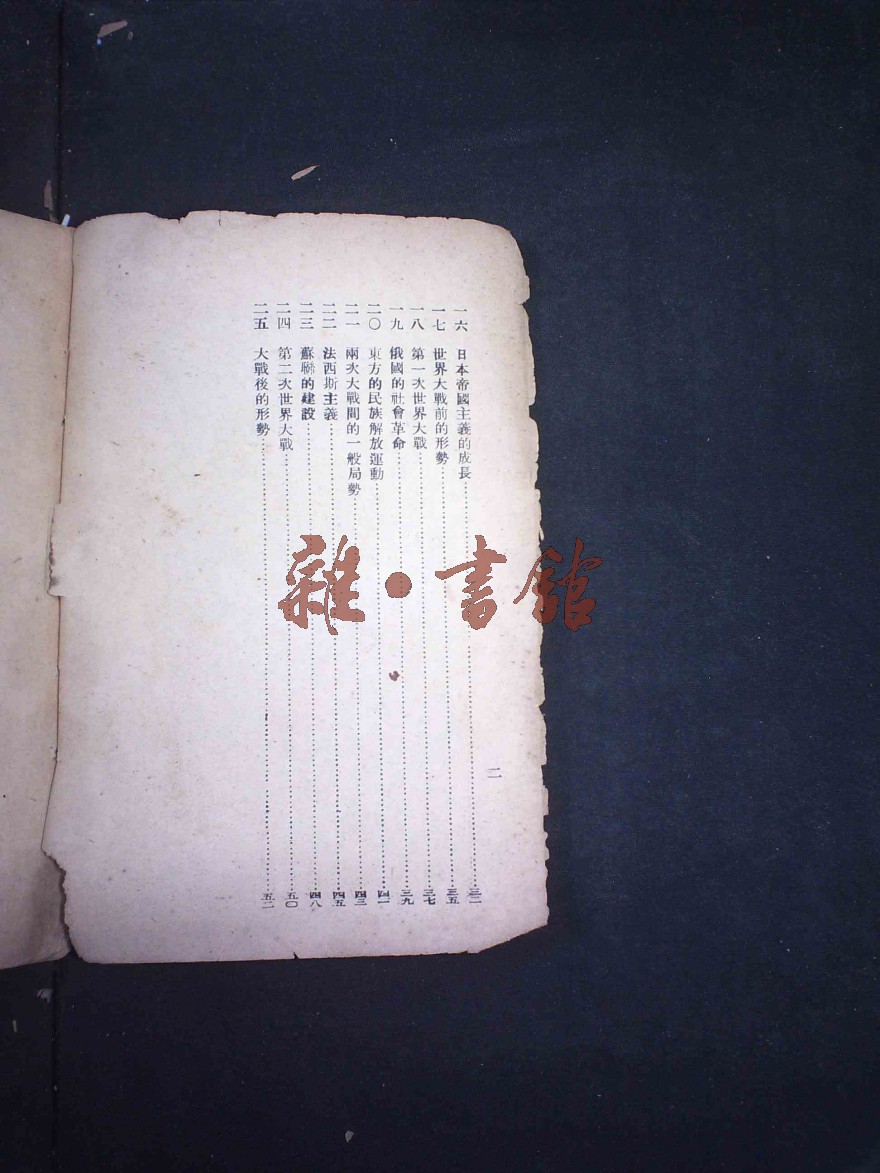 一六 日本帝國主義的成長……三二
一七 世界大戰前的形勢……三五
一八 第一次世界大戰……三七
一九 俄國的社會革命……三九
二〇 東方的民族解放運動……四一
二一 兩次大戰間的一般局勢……四三
二二 法西斯主義……四五
二三 蘇聯的建設……四八
二四 第二次世界大戰……五〇
二五 大戰後的形勢……五二
二
雜·書館